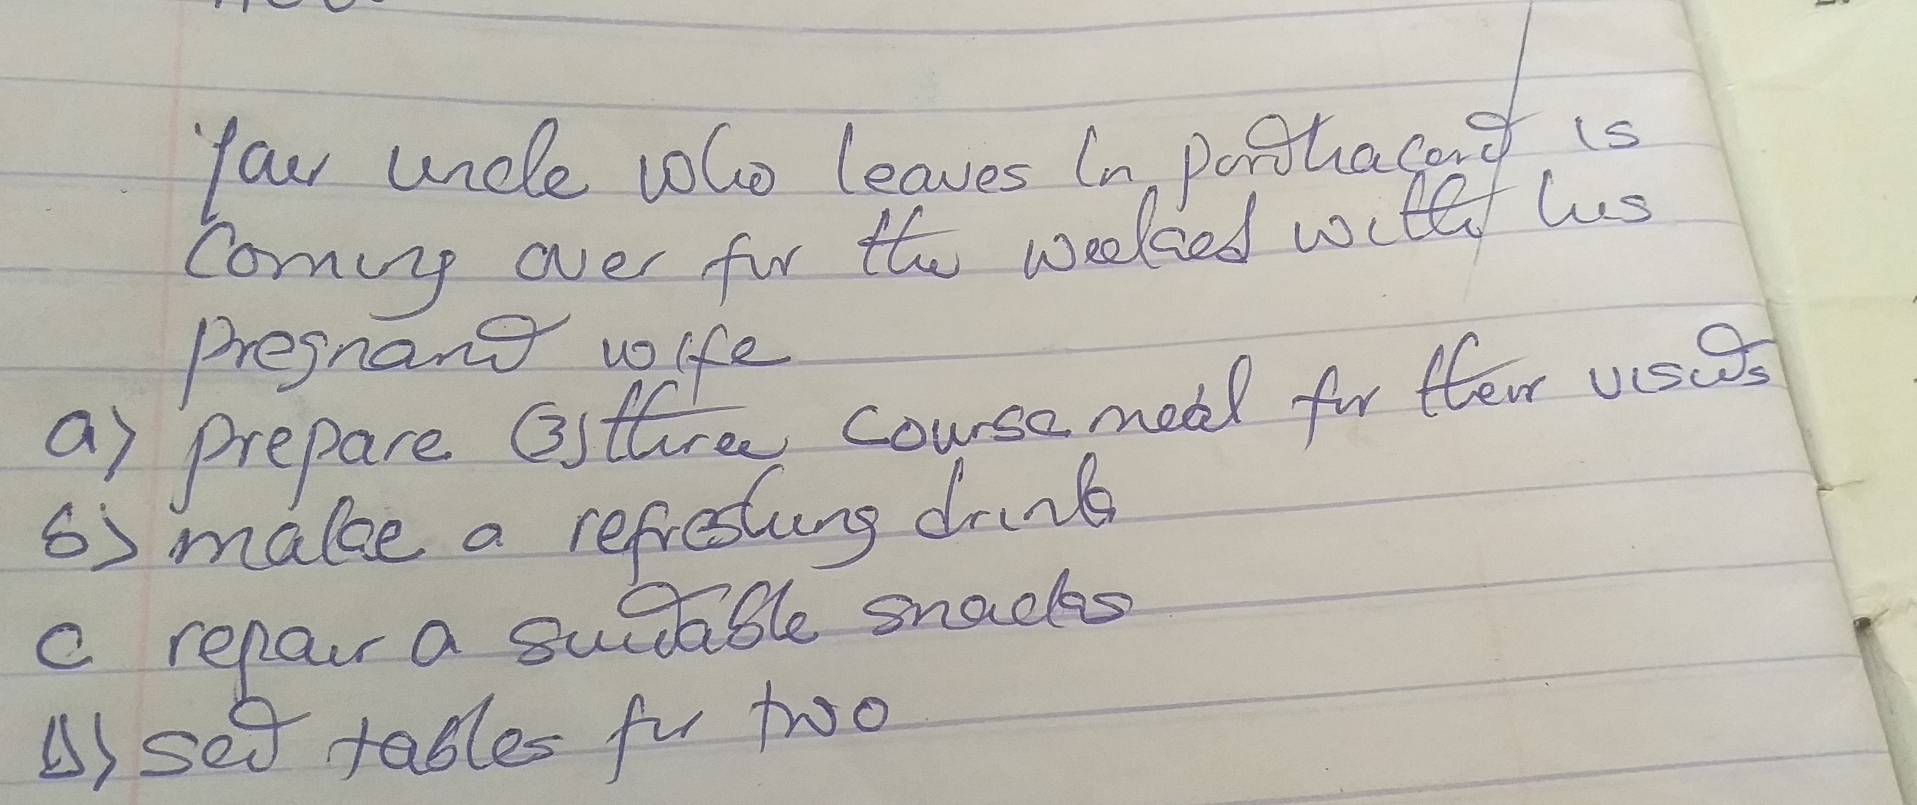 Your uncle who leaves in Porthacord is
Coming over for the weeked with his
Pregnant wife
a) prepare (3) three course meal for their visits
b) make a refreshing drink
c repair a suitable snacks
D) set tables for two